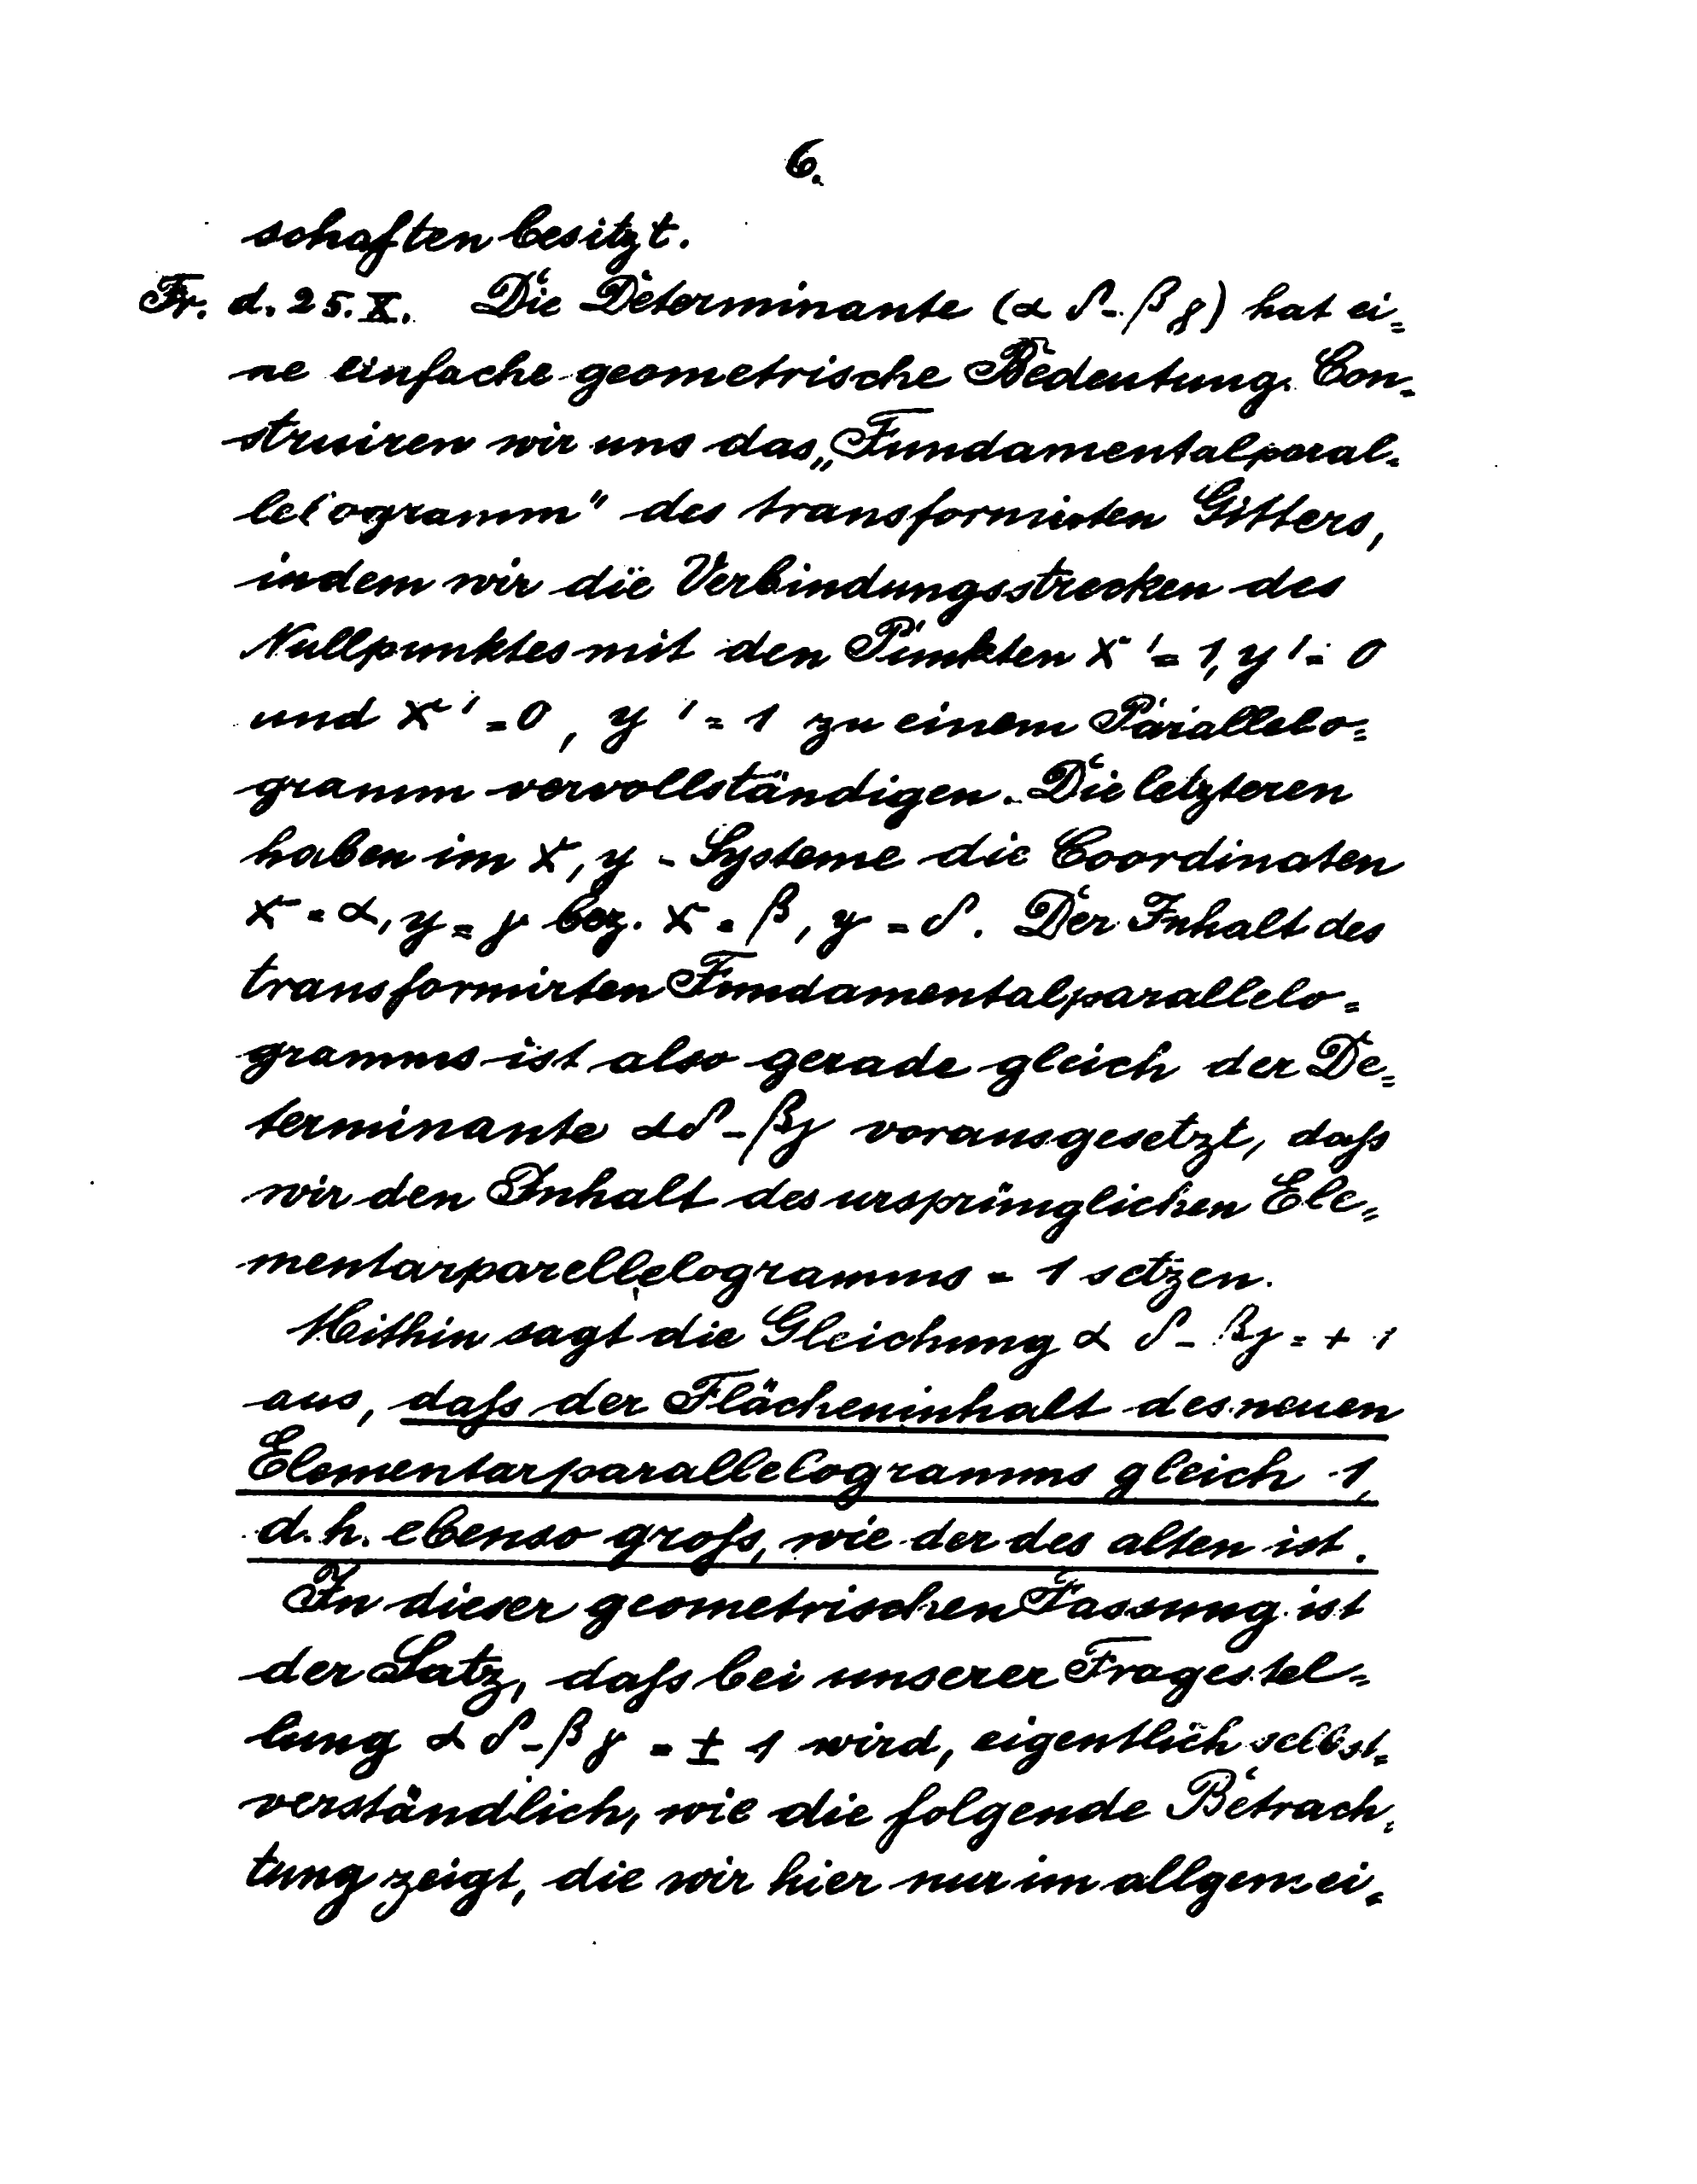 6.
schaften besitzt.
Fr. d. 25. X. Die Determinante (α δ - β γ) hat ei=
ne einfache geometrische Bedeutung. Con-
struiren wir uns das „Fundamentalparal-
lelogramm" des transformirten Gitters,
indem wir die Verbindungsstrecken des
Nullpunktes mit den Punkten x' = 1, y' = 0
und x' = 0, y' = 1 zu einem Parallelo=
gramm vervollständigen. Die letzteren
haben im x, y - Systeme die Coordinaten
x = α, y = γ bez. x = β, y = δ. Der Inhalt des
transformirten Fundamentalparallelo=
gramms ist also gerade gleich der De=
terminante αδ - βγ vorausgesetzt, daß
wir den Inhalt des ursprünglichen Ele=
mentarparellelogramms = 1 setzen.
Mithin sagt die Gleichung α δ - βγ = + 1
aus, daß der Flächeninhalt des neuen
Elementarparallelogramms gleich 1,
d. h. ebenso groß, wie der des alten ist.
In dieser geometrischen Fassung ist
der Satz, daß bei unserer Fragestel=
lung α δ - β γ = ± 1 wird, eigentlich selbst=
verständlich, wie die folgende Betrach=
tung zeigt, die wir hier nur im allgemei=